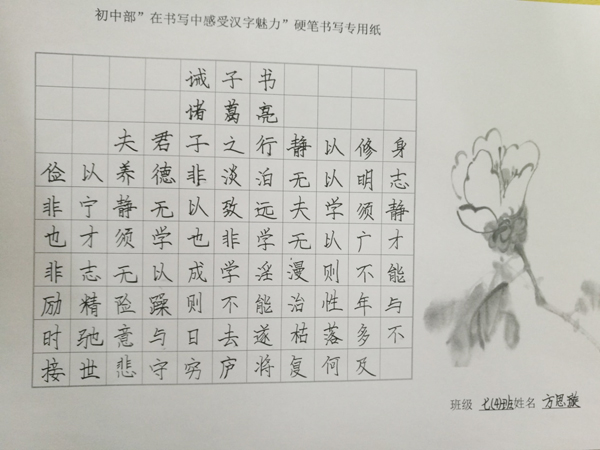 初中部"在书写中感受汉字魅力"硬笔书写专用纸
诫子书
诸葛亮
夫君子之行静以修身
俭以养德非淡泊无以明志
非宁静无以致远夫学须静
也才须学也非学无以广才
非志无以成学淫漫则不能
励精险躁则不能治性年与
时驰意与日去遂枯落多不
接世悲守穷庐将复何及
班级 七(4)班姓名 方思